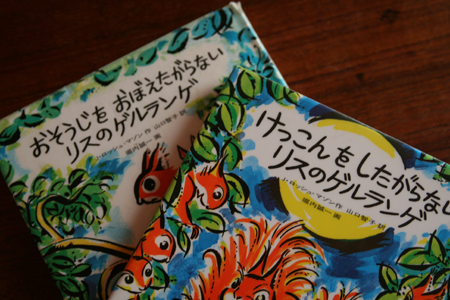 おそうじを おぼえたがらない
リスのゲルランゲ
J・ロッシュ=マゾン 作 山口智子 訳
堀内誠一 画
けっこんをしたがらない
リスのゲルランゲ
J・ロッシュ=マゾン 作 山口智子 訳
堀内誠一 画